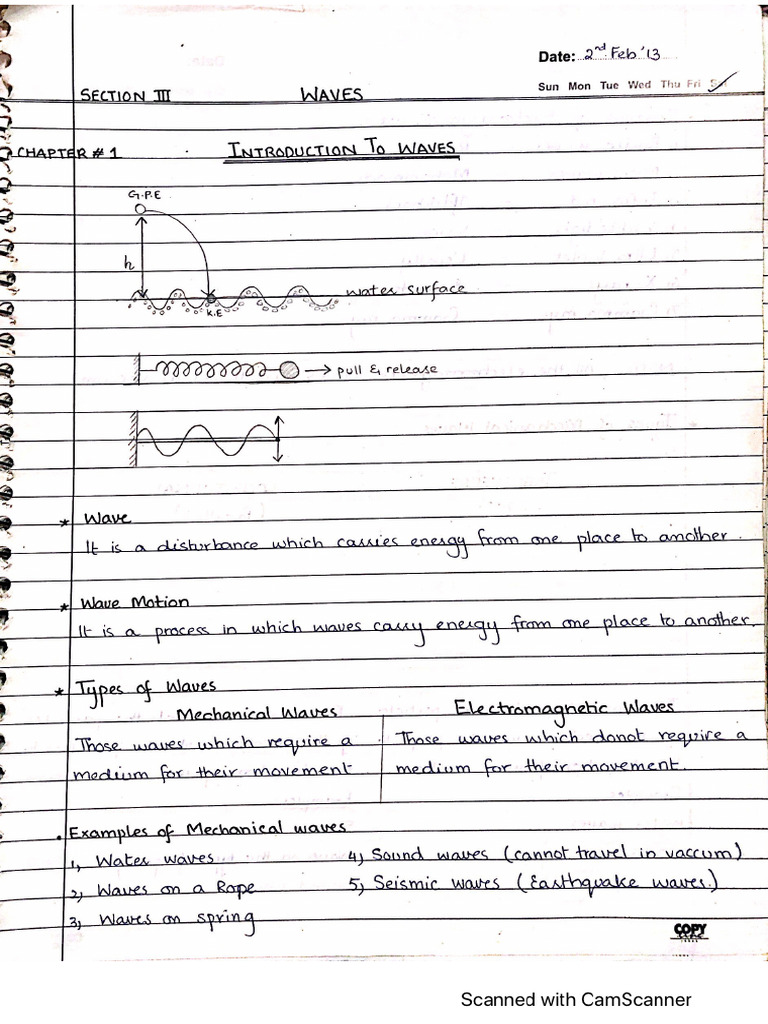 Date: 2nd Feb '13
Sun Mon Tue Wed Thu Fri Sat
SECTION III WAVES
CHAPTER # 1 INTRODUCTION TO WAVES
G.P.E
h
water surface
K.E
→ pull & release
* Wave
It is a disturbance which carries energy from one place to another.
* Wave Motion
It is a process in which waves carry energy from one place to another.
* Types of Waves
Mechanical Waves Electromagnetic Waves
Those waves which require a Those waves which donot require a
medium for their movement medium for their movement.
. Examples of Mechanical waves
1, Water waves 4, Sound waves (cannot travel in vaccum)
2, Waves on a Rope 5, Seismic waves (Earthquake waves.)
3, Waves on spring
COPY
Scanned with CamScanner